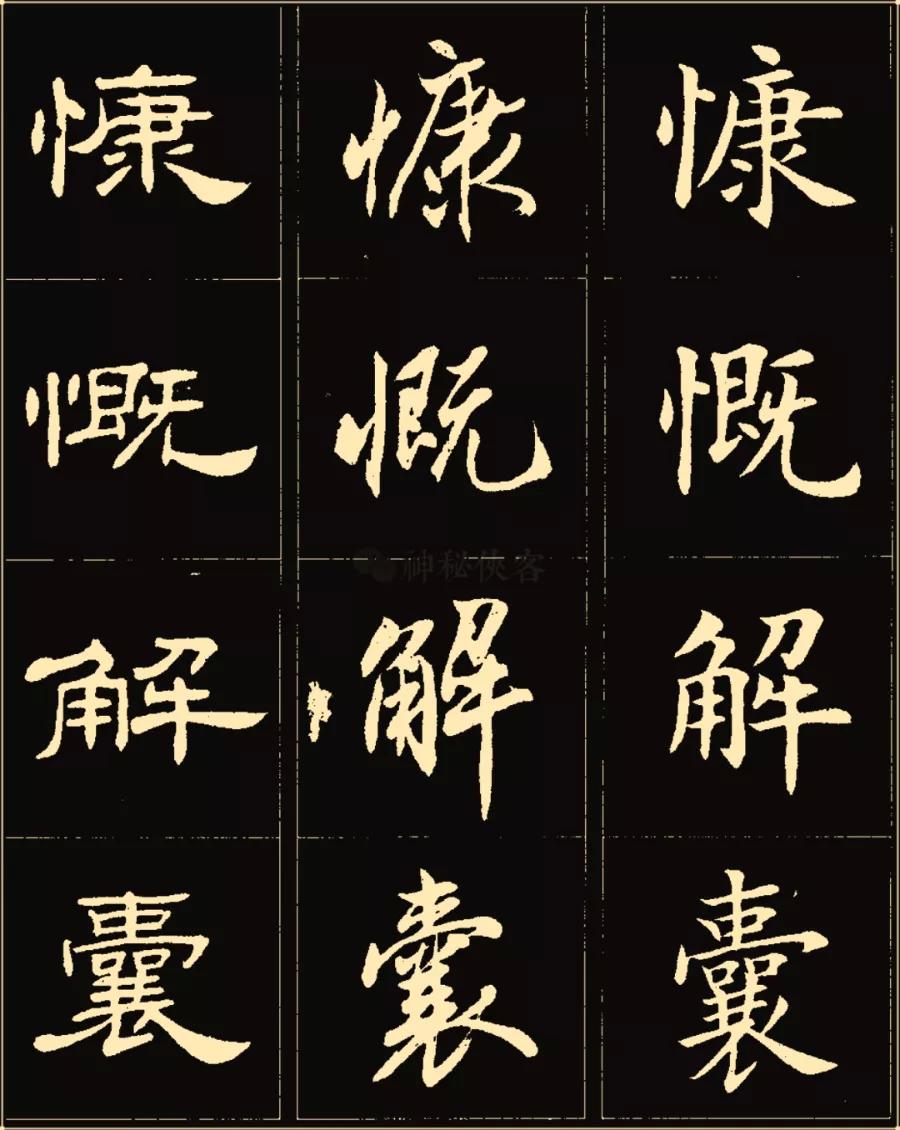 慷
慨
解
囊
慷
慨
解
囊
慷
慨
解
囊
神秘侠客